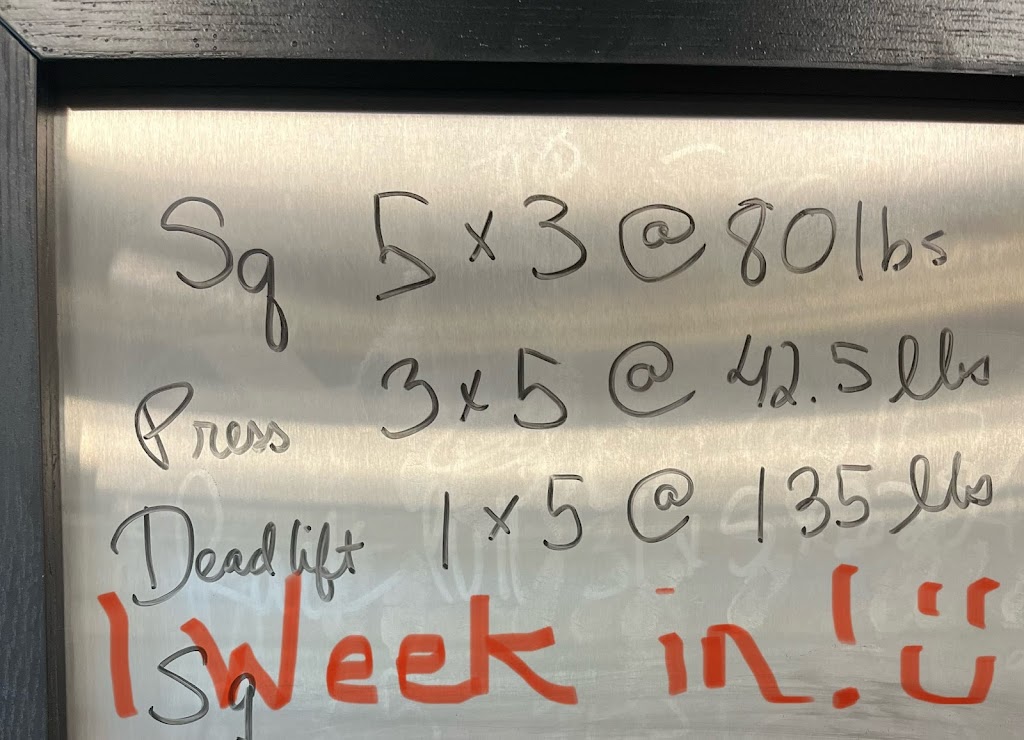 Sq 5 x 3 @ 80 lbs
Press 3 x 5 @ 42.5 lbs
Deadlift 1 x 5 @ 135 lbs
1 Week in! :)
Sq